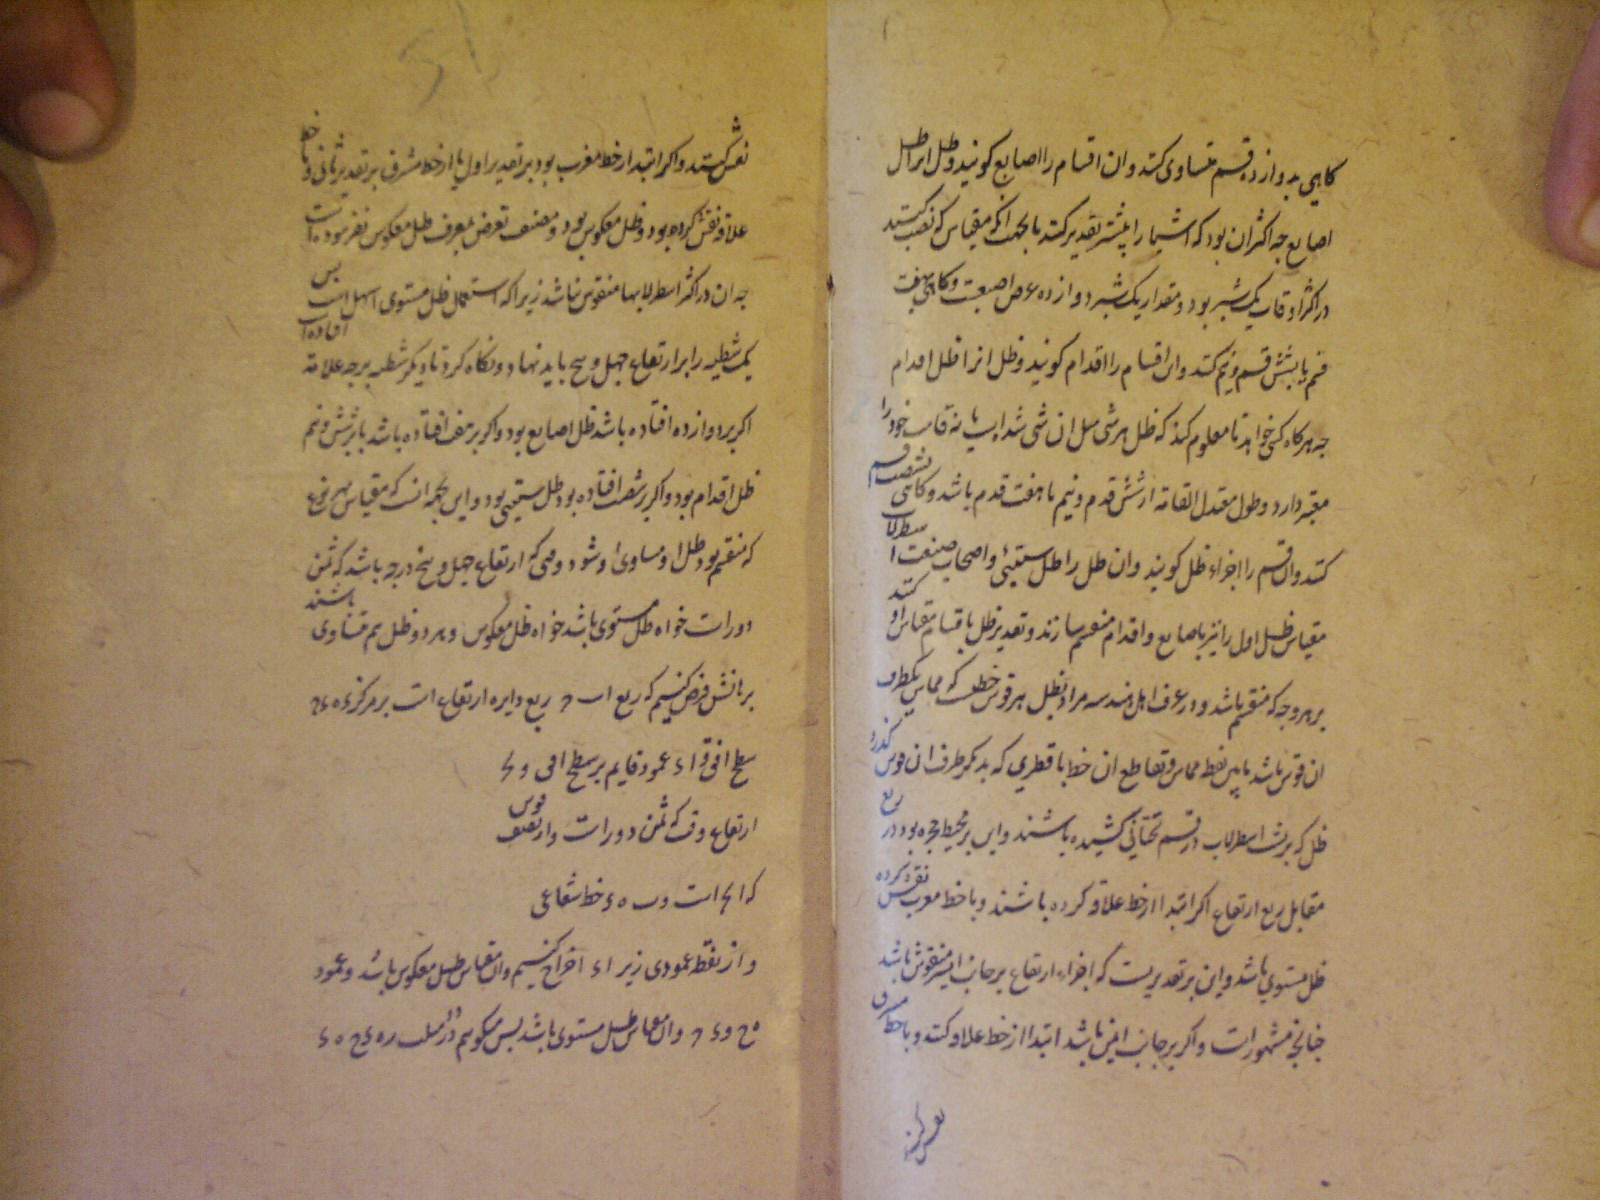 کاهی بدوازده قسم متساوی کنند و ان اقسام را اصابع کویند و ظل را ظل
اصابع چه اکثر ان بود که اشیا را بشبر تقدیر کنند یا بجهت انکه مقیاس که نصب کنند
در اکثر اوقات یک شبر بود و مقدار یک شبر دوازده عرض اصبعت و کاهی بهفت
قسم یا بشش قسم و نیم کنند و ان اقسام را اقدام کویند و ظل انرا ظل اقدام
چه هرکاه کسی خواهد تا معلوم کند که ظل هر شی مثل ان شی شد است یا نه قامت خود را
معتبر دارد و طول معتدل القامه از شش قدم و نیم تا هفت قدم باشد و کاهی بشصت قسم
کنند و ان قسم را اجزاء ظل کویند و ان ظل را ظل ستینی و اصحاب صنعت اسطرلاب
مقیاس ظل اول را نیز باصابع و اقدام منقسم سازند و تقدیر ظل باقسام مقیاس او کنند
بر هر وجه که منقسم باشد و در عرف اهل هندسه مراد بظل هر قوس خطیست که مماس یکطرف
ان قوس باشد ما بین نقطه مماس و تقاطع ان خط با قطری که بدیکر طرف ان قوس کذرد
ظل که بر پشت اسطرلاب در قسم تحتانی کشیده باشند و این بر محیط حجره بود در ربع
مقابل ربع ارتفاع اکر ابتدا از خط علاقه کرده باشند و با خط مغرب نقش کرده
ظل مستوی باشد و این بر تقدیریست که اجزاء ارتفاع بر جانب ایسر منقوش باشد
چنانچه مشهورات و اکر بر جانب ایمن باشد ابتدا از خط علاقه کنند و با خط مشرق
نقش کنند
نقش کنند و اکر ابتدا از خط مغرب بود بر تقدیر اول یا از خط مشرق بر تقدیر ثانی و تا خط
علاقه نقش کرده بود و ظل معکوس بود و مصنف تعرض بمعرفت ظل معکوس نفرموده است
چه ان در اکثر اسطرلابها منقوش نباشد زیرا که استعمال ظل مستوی اسهل است پس
یک شظیه را بر ارتفاع چهل و پنج باید نهاد و نکاه کرد تا دیکر شظیه بر چه علامه افتاده است
اکر بر دوازده افتاده باشد ظل اصابع بود و اکر بر هفت افتاده باشد یا بر شش و نیم
ظل اقدام بود و اکر بر شصت افتاده بود ظل ستینی بود و این بجهة انست که مقیاس بهر نوع
که منقسم بود ظل او مساوی او شود وقتی که ارتفاع چهل و پنج درجه باشد که ثمن
دورات خواه ظل مستوی باشد خواه ظل معکوس و هر دو ظل هم متساوی باشند
برهانش فرض کنیم که ربع اب ح ربع دایره ارتفاع است بر مرکز ء
سطح افق و ا ء عمود قایم بر سطح افق و
ارتفاع وقت که ثمن دورات و ا نصف قوس
خط شعاعی
و از نقطه عمودی زیر ا ء اخراج کنیم و ان مقیاس ظل معکوس باشد و عمود
و ان مقیاس ظل مستوی باشد پس میکویم در مثلث